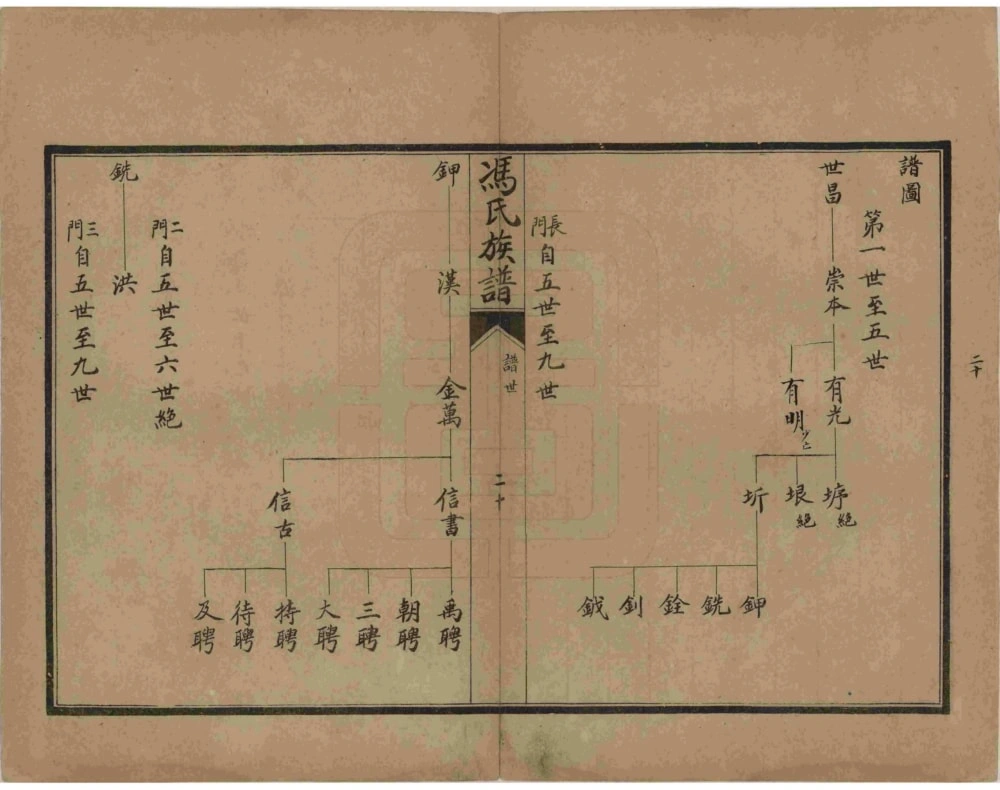 譜圖
第一世至五世
世昌
崇本
有光
有明 少亡
垿 絕
垠 絕
圻
鉀
銑
銓
釗
鉞
長門自五世至九世
馮氏族譜
譜世
二十
鉀
漢
金萬
信書
信古
禹聘
朝聘
三聘
大聘
持聘
待聘
及聘
二門自五世至六世絕
銑
洪
三門自五世至九世
二十